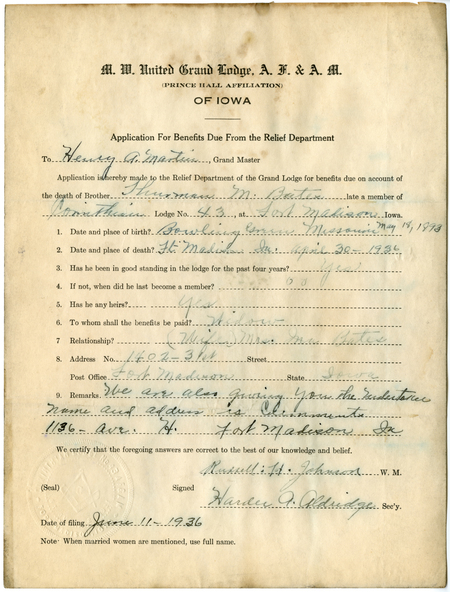 M. W. United Grand Lodge, A. F. & A. M.
(PRINCE HALL AFFILIATION)
OF IOWA
Application For Benefits Due From the Relief Department
To Henry A. Martin, Grand Master
Application is hereby made to the Relief Department of the Grand Lodge for benefits due on account of
the death of Brother Thurman M. Bates late a member of
Corinthian Lodge No. 43, at Fort Madison Iowa.
1. Date and place of birth? Bowling Green Missouri May 18, 1893
2. Date and place of death? Ft. Madison Ia. April 30-1936
3. Has he been in good standing in the lodge for the past four years? Yes
4. If not, when did he last become a member?
5. Has he any heirs? Yes
6. To whom shall the benefits be paid? Widow
7. Relationship? (Wife) Mrs. Bates
8. Address No. 1602-31st Street
Post Office Fort Madison State Iowa
9. Remarks. We are also giving you the Undertaker
name and address is
1136- Ave. H. Fort Madison Ia
We certify that the foregoing answers are correct to the best of our knowledge and belief.
Russell H. Johnson W. M.
(Seal) Signed
A. Aldridge Sec'y.
Date of filing June 11-1936
Note: When married women are mentioned, use full name.